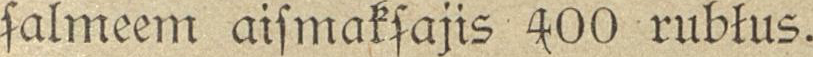 ſalmeem aiſmakſajis 400 rubłus.